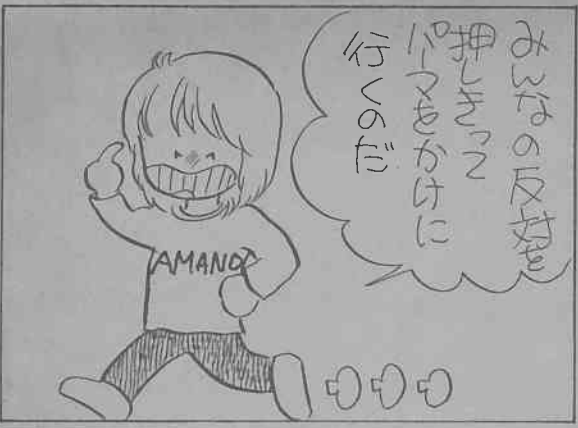 みんなの反対を
押しきって
パーマをかけに
行くのだ
AMANO